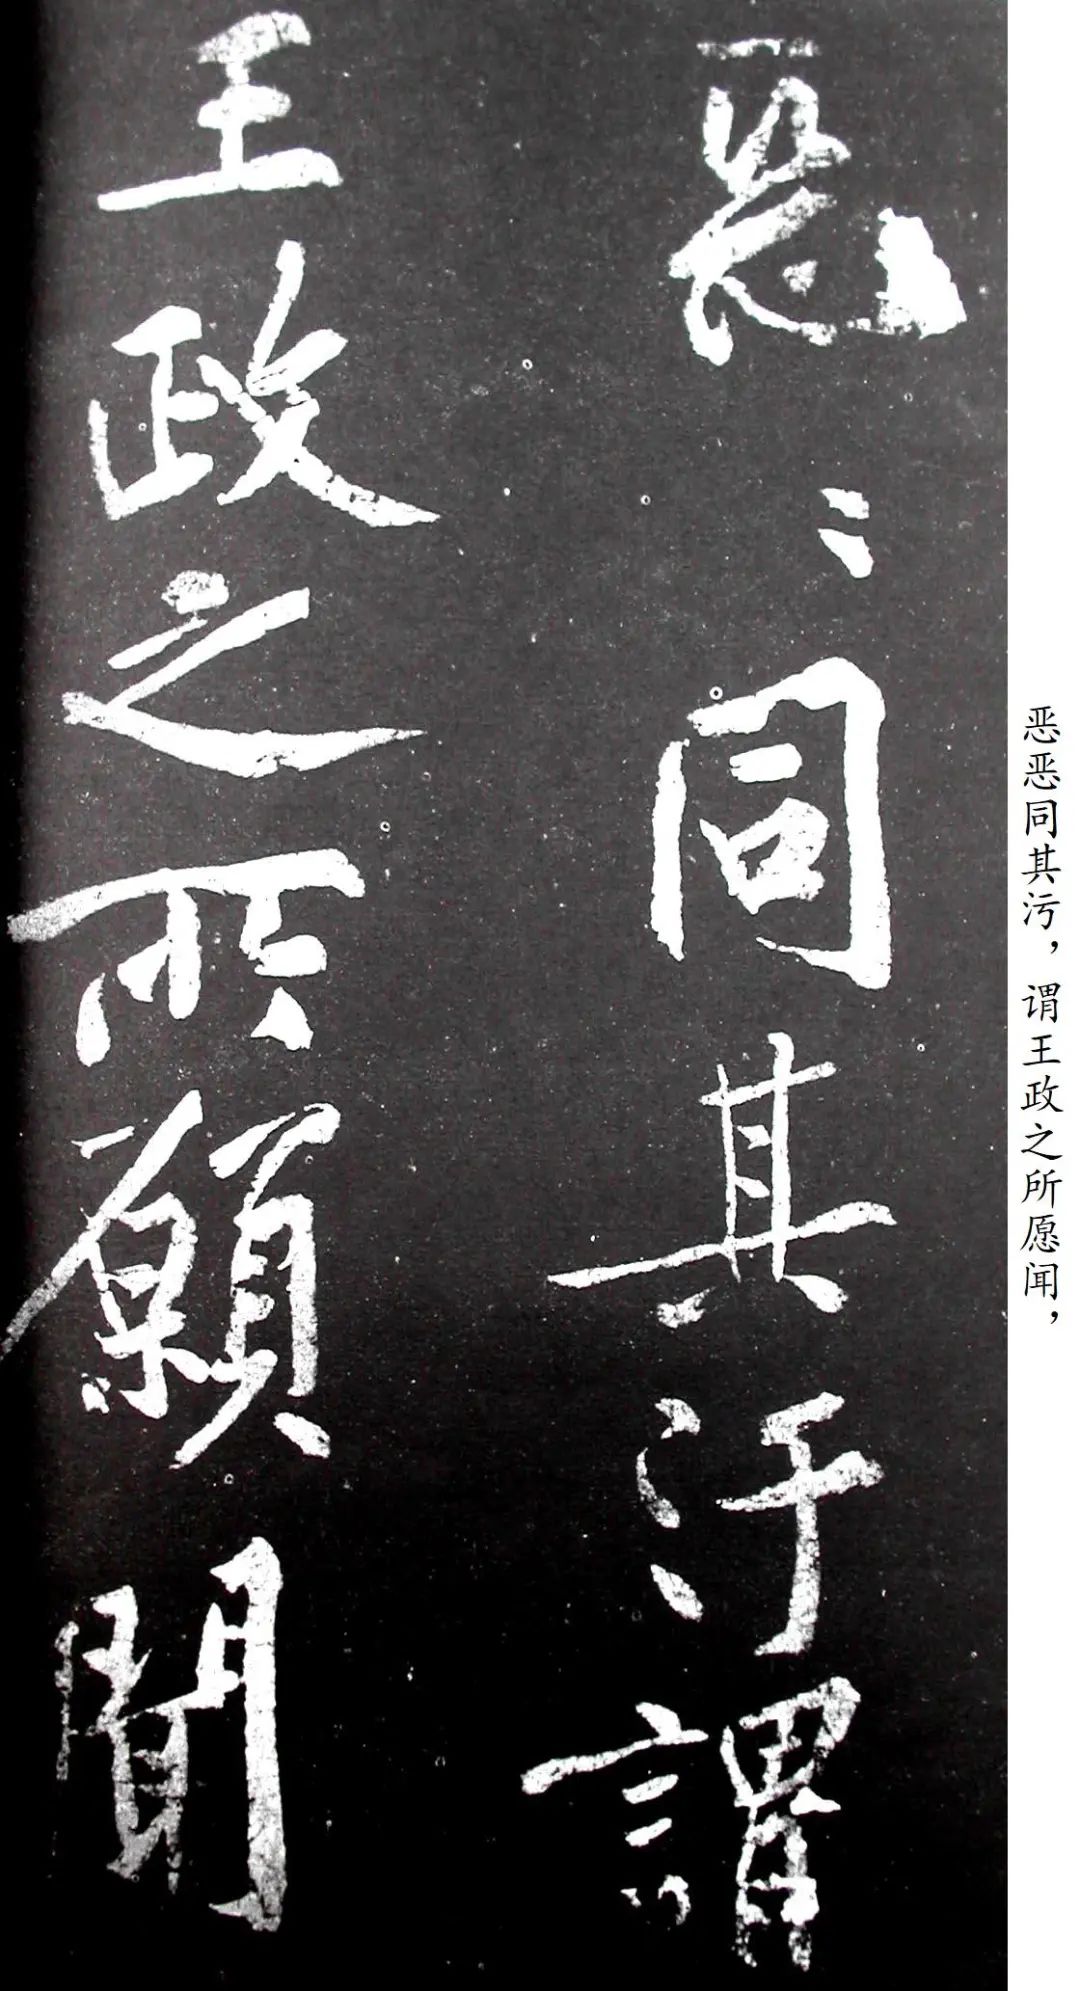 惡〻同其汙謂
王政之所願聞
恶恶同其污，谓王政之所愿闻，